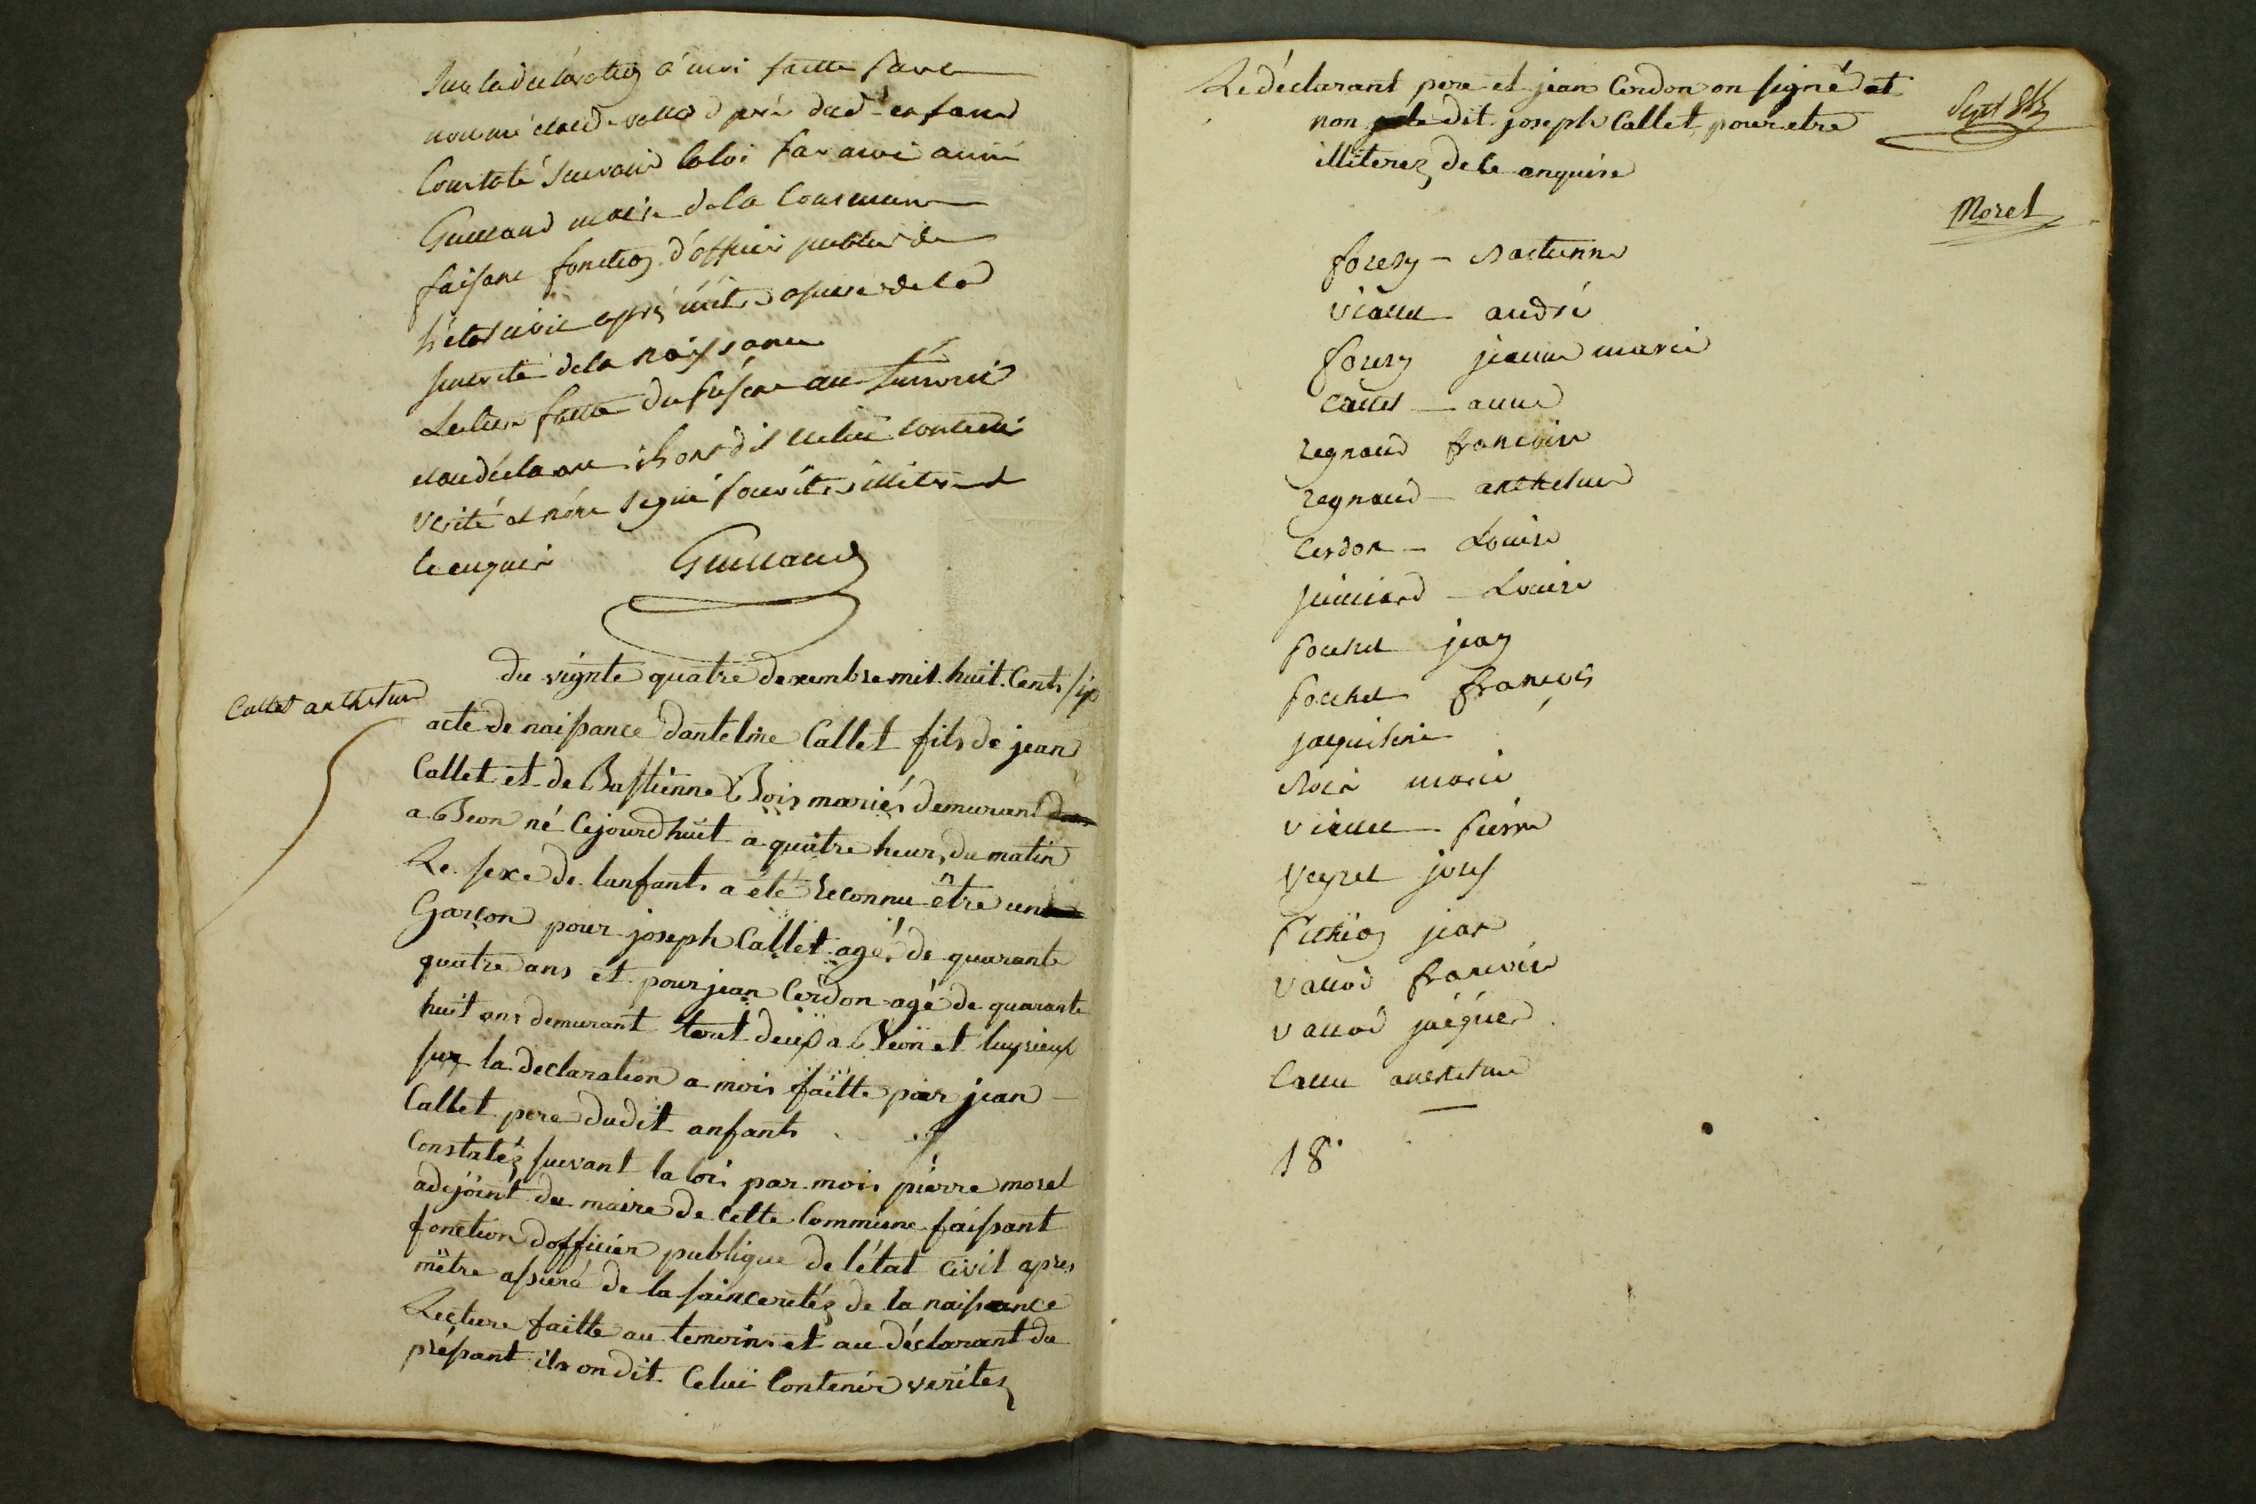 Sur la déclaration à moi faitte par le
nommé claude vallod père dud. enfand
Constaté suivant la loi par moi aimé
Guillaud maire de la Commune
faisant fonction d'officier public de
l'état civil après m'être assuré de la
sincerité de la naissance
Lecture faitte du présent au témoins
et au déclarant ils ont dit celui contenir
verité et n'ont signé pour être illitéré
le enquis
Guillaud
du vignte quatre dexembre mil huit Cents six
Callet anthelme
acte de naissance dantelme Callet fils de jean
Callet et de Bastienne Bois mariés demurant
a Béon né Cejourdhuit a quatre heurs du matin
Le sexe de lanfant a été reconnu être un
Garçon pour joseph Callet agé de quarante
quatre ans et pour jean Cerdon agé de quarante
huit ans demurant tout deux a Béon et luyrieux
sur la declaration a mois faitte par jean
Callet pere dudit anfant
Constatéz suivant la loi par mois pierre morel
adejoint du maire de cette Commune faissant
fonction dofficier publique de l'état civil apres
mêtre assuré de la sainceretéz de la naissance
Lecture faitte au temoins et au déclarant du
préssant ils on dit Celui Contenir veritez
Le déclarant pere et jean Cerdon on signé et
non le dit joseph Callet pour etre
illiterez de le anquise
Morel
andré
jeanne marie
Callet anne
regnaud francoise
regnaud anthelme
Cerdon Louise
Louise
pochet jean
pochet françois
marie
pierre
veyret josef
jean
vallod francoise
vallod
Callet anthelme
18